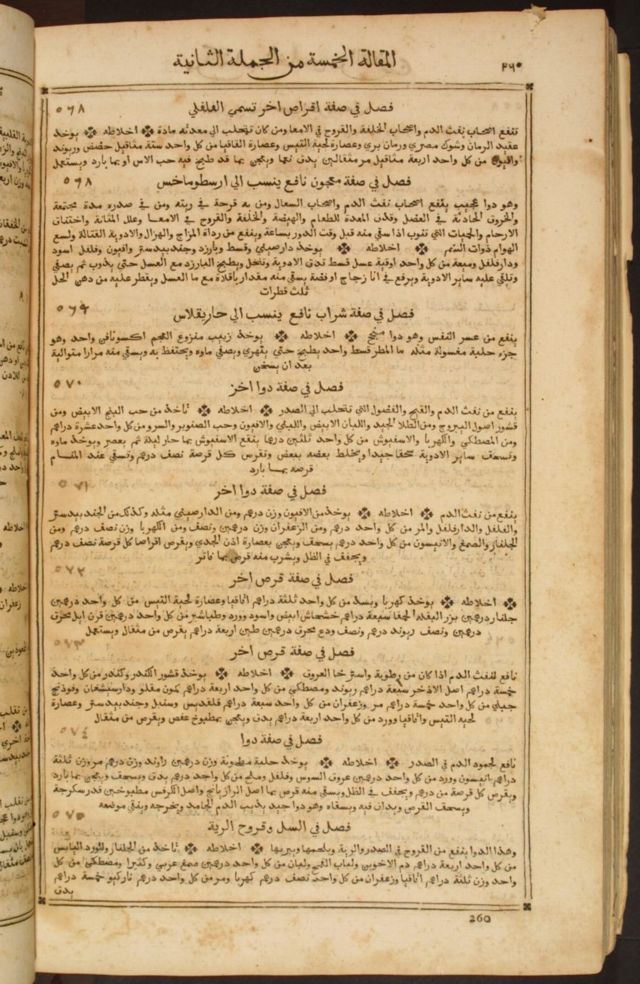 المقالة الخمسة من الجملة الثانية
٢٦٠
فصل في صفة اقراص اخر تسمي الفلفلي
٥٦٨
تنفع اصحاب نفث الدم واصحاب الخلفة والقروح في الامعا ومن كان تتحلب الي معدته مادة اخلاطه يوخذ
عقيد الرمان وشوك مصري ورمان بري وعصارة لحية التيس وعصارة القاقيا من كل واحد ستة مثاقيل حضض وريوند
وافيون من كل واحد اربعة مثاقيل مر مثقالين يدق نهما ويعجن بما قد طبخ فيه حب الاس او بما بارد ويستعمل
فصل في صفة معجون نافع ينسب الي ارسطوماخس
٥٦٨
وهو دوا عجيب ينفع اصحاب نفث الدم واصحاب السعال ومن به قرحة في ريته ومن في صدره مدة مجتمعة
والخروق الحادثة في العضل وقذف المعدة للطعام والهيضة والخلفة والقروح في الامعا وعلل المثانة واختناق
الارحام والحميات التي تنوب اذا سقي منه قبل وقت الدور بساعة وينفع من رداة المزاج والهزال والادوية القتالة ولسع
الهوام ذوات السم اخلاطه يوخذ دارصيني وقسط وبارزد وجندبيدستر وافيون وفلفل اسود
ودارفلفل وميعة من كل واحد اوقية عسل قسط تدق الادوية وتنخل ويطبخ البارزد مع العسل حتي يذوب ثم يصفي
وتلقي عليه ساير الادوية ويرفع في انا زجاج او فضة يسقي منه مقدار باقلاة مع ما العسل ويقطر عليه من دهن الخل
ثلث قطرات
فصل في صفة شراب نافع ينسب الي حاريقلاس
٥٦٩
ينفع من عسر النفس وهو دوا اخلاطه يوخذ زبيب منزوع العجم اكسونافن واحد وهو
جزء حلبة مغسولة مثله ما المطر قسط واحد يطبخ حتي يتهري ويصفي ماوه ويحتفظ به ويسقي منه مرارا متوالية
بعد ان يسخن
فصل في صفة دوا اخر
٥٧٠
ينفع من نفث الدم والقيح والفضول التي تتحلب الي الصدر اخلاطه تاخذ من حب البنج الابيض ومن
قشور اصول اليبروح ومن الطلا الجيد واللبان الابيض واللبني والافيون وحب الصنوبر والسرو من كل واحد عشرة دراهم
ومن المصطكي والكهربا والاسفيوش من كل واحد ثلثين درهما ينقع الاسفيوش بما حار ليلة ثم يعصر ويوخذ ماوه
وتسحق ساير الادوية سحقا جيدا ويخلط بعضه ببعض وتقرص كل قرصة نصف درهم وتسقي عند المنام
قرصه بما بارد
فصل في صفة دوا اخر
٥٧١
ينفع من نفث الدم اخلاطه يوخذ من الافيون وزن درهمين ومن الدارصيني مثله وكذلك من الجندبيدستر
والفلفل والدارفلفل والمر من كل واحد درهم ومن الزعفران وزن درهمين ونصف ومن الكهربا وزن نصف درهم ومن
الجلنار والصمغ والانيسون من كل واحد درهم يسحق ويعجن بعصارة اذن الجدي ويقرص اقراصا كل قرصة نصف درهم
ويجفف في الظل ويشرب منه قرص بما فاتر
فصل في صفة قرص اخر
٥٧٢
اخلاطه يوخذ كهربا وبسد من كل واحد ثلثة دراهم اقاقيا وعصارة لحية التيس من كل واحد درهمين
جلنار درهمين بزر البقلة الحمقا سبعة دراهم خشخاش ابيض واسود وورد وطباشير من كل واحد درهمين قرن ايل محرق
درهمين ونصف ريوند درهم ونصف ودع محرق درهمين طين اربعة دراهم يقرص من مثقال ويستعمل
فصل في صفة قرص اخر
٥٧٣
نافع لنفث الدم اذا كان من رطوبة واسترخا العروق اخلاطه يوخذ قشور الكندر وكندر من كل واحد
خمسة دراهم اصل الاذخر سبعة دراهم ريوند ومصطكي من كل واحد اربعة دراهم كمون مقلو ودارسيشعان وفوذنج
جبلي من كل واحد خمسة دراهم مر وزعفران من كل واحد سبعة دراهم قلقديس وسنبل وجندبيدستر وعصارة
لحية التيس واقاقيا وورد من كل واحد اربعة دراهم يدق ويعجن بمطبوخ عفص ويقرص من مثقال
فصل في صفة دوا
٥٧٤
نافع لجمود الدم في الصدر اخلاطه يوخذ حلبة مطحونة وزن درهمين راوند وزن درهم مر وزن ثلثة
دراهم انيسون وورد من كل واحد درهمين عروق السوس وفلفل وملح من كل واحد درهم يدق ويسحق ويعجن بما بارد
ويقرص كل قرصة من درهم ويجفف في الظل ويسقي منه قرص بما اصل الرازيانج واصل الكرفس مطبوخين قدر سكرجة
ويسحق القرص ويداف فيه ويسقاه وهو دوا جيد يذيب الدم الجامد ويخرجه وينقي موضعه
فصل في السل وقروح الرية
٥٧٥
وهذا الدوا ينفع من القروح في الصدر والرية ويلحمها ويبريها اخلاطه تاخذ من الجلنار والورد اليابس
من كل واحد اربعة دراهم دم الاخوين ولعاب القي ولبان من كل واحد درهمين صمغ عربي وكثيرا ومصطكي من كل
واحد وزن ثلثة دراهم اقاقيا وزعفران من كل واحد نصف درهم كهربا ومر من كل واحد درهم ناركيو خمسة دراهم
يدق
260